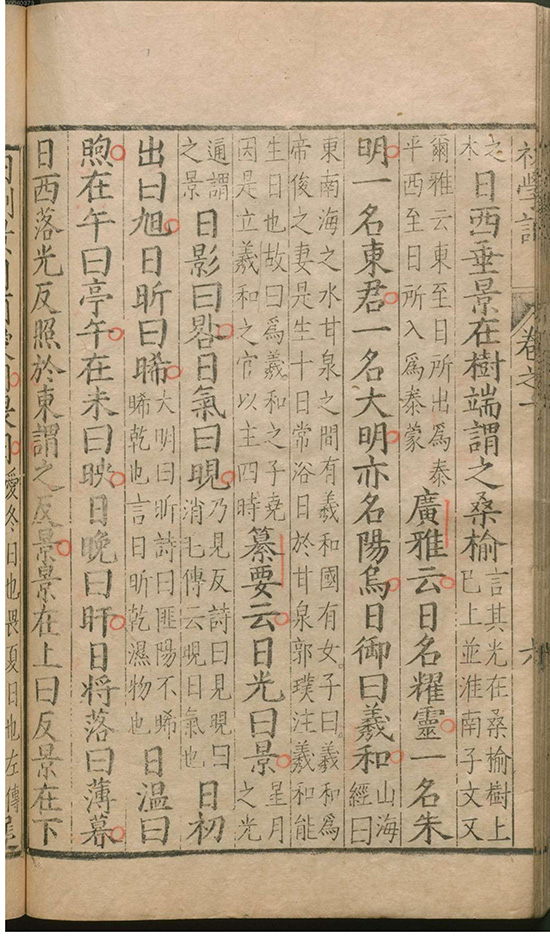 初學記 卷之一 六
之木日西垂景在樹端謂之桑榆言其光在桑榆樹上已上並淮南子文又
爾雅云東至日所出為泰平西至日所入為泰蒙廣雅云日名耀靈一名朱
明一名東君一名大明亦名陽烏日御曰羲和山海經曰
東南海之水甘泉之間有羲和國有女子曰羲和為帝俊之妻是生十日常浴日於甘泉郭璞注羲和能
生日也故曰為羲和之子堯因是立羲和之官以主四時纂要云日光曰景星月之光
通謂之景日影曰晷日氣曰晛乃見反詩曰見晛曰消毛傳云晛日氣也日初
出曰旭日昕曰晞大明曰昕詩曰匪陽不晞晞乾也言日昕乾濕物也日溫曰
煦在午曰亭午在未曰昳日晚曰旰日將落曰薄暮
日西落光反照於東謂之反景景在上曰反景在下
愛冬日也畏夏日也左傳